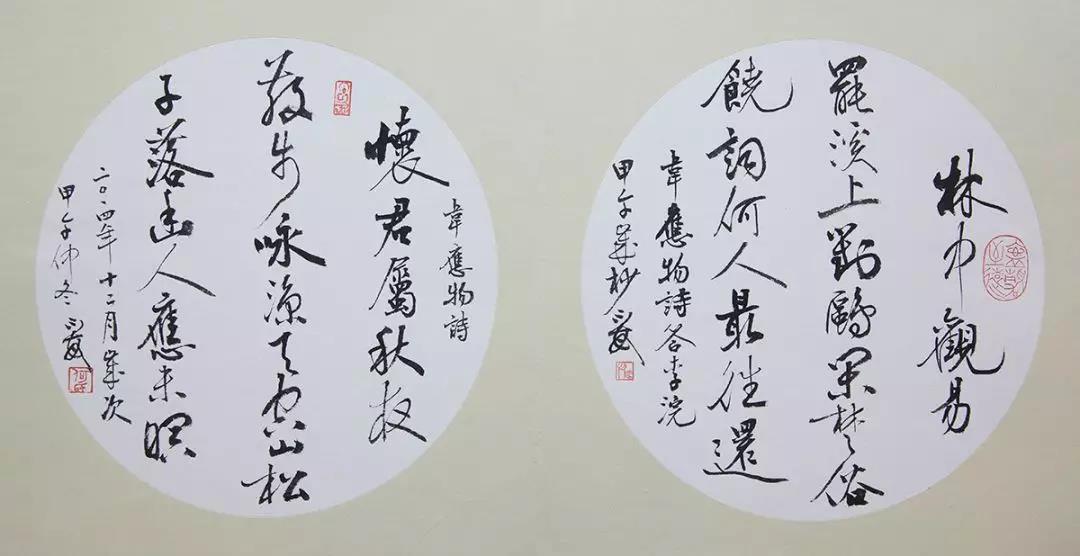 林中觀易
罷溪上對鷗閑楚俗
饒詞何人最往還
韋應物詩答李浣
甲午歲杪
韋應物詩
懷君屬秋夜
散步咏涼天空山松
子落幽人應未眠
二〇一四年十二月歲次
甲午仲冬